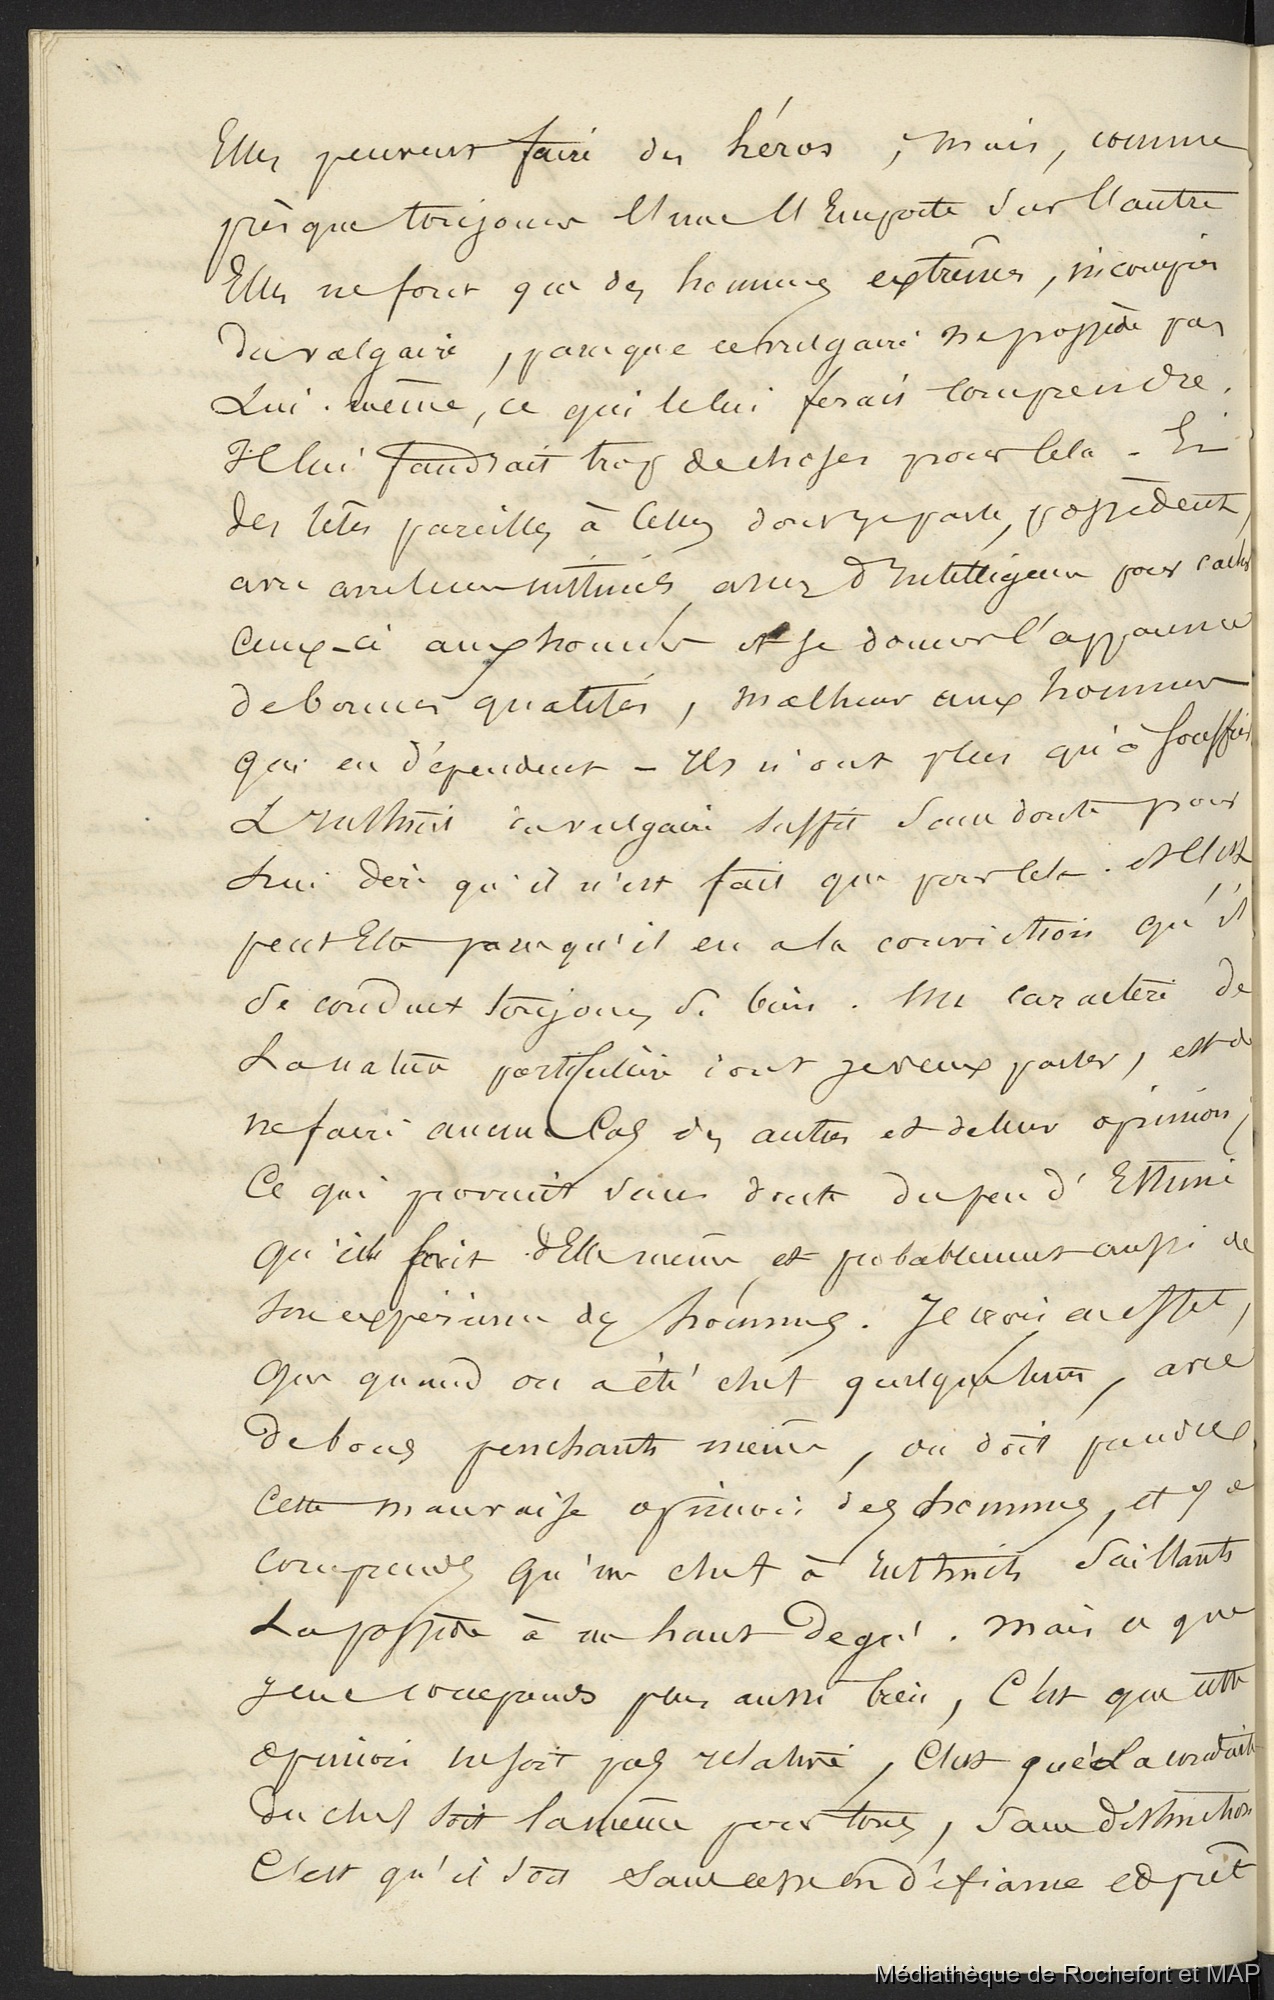 Elles peuvent faire des héros, mais, comme
presque toujours l'une l'Emporte sur l'autre
Elles ne font que des hommes extrêmes, incompris
du vulgaire, parceque ce vulgaire ne possède pas
Lui-même, ce qui le lui ferait comprendre.
Il lui faudrait trop de choses pour cela - Si
des têtes pareilles à Celles dont je parle, possèdent,
avec instincts, assez d'Intelligence pour cacher
Ceux-ci aux hommes et se donner l'apparence
de bonnes qualités, malheur aux hommes
qui en dépendent - Ils n'ont plus qu'à souffrir
L'Instinct du vulgaire suffit sans doute pour
Lui dire qu'il n'est fait que pour cela. et C'est
peut Etre parcequ'il en a la conviction qu'il
se conduit toujours si bien. Un caractère de
La nature particulière dont je veux parler, est de
ne faire aucun Cas des autres et de leur opinion,
Ce qui provient sans doute du peu d'Estime
qu'elle fait d'Elle même et probablement aussi de
son expérience des hommes. Je crois en effet,
que quand on a été chef quelque tems, avec
de bons penchants même, on doit prendre
Cette mauvaise opinion des hommes, et je
comprends qu'un chef à Instincts Saillants
La possède à un haut degré. Mais ce que
je ne comprends plus aussi bien, C'est que cette
opinion ne soit pas relative, C'est que La conduite
du chef soit la même pour tous, sans distinction
C'est qu'il soit sans cesse en défiance et prêt
Médiathèque de Rochefort et MAP